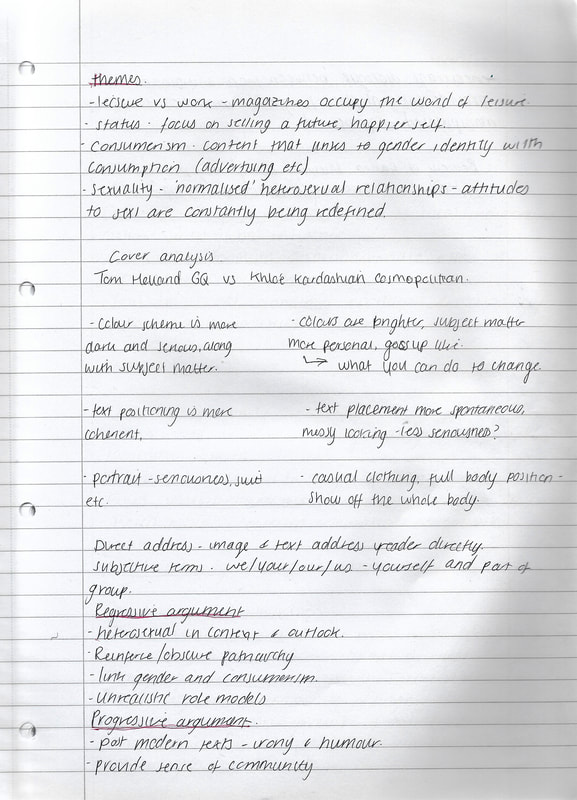 themes.
- leisure vs work - magazines occupy the world of leisure.
- status - focus on selling a future, happier self.
- consumerism - content that links to gender identity with
consumption (advertising etc)
- sexuality - 'normalised' heterosexual relationships - attitudes
to sex are constantly being redefined.
Cover analysis
Tom Holland GQ vs Khloé Kardashian Cosmopolitan.
- colour scheme is more
dark and serious, along
with subject matter.
- colours are brighter, subject matter
more personal, gossup like.
↳ what you can do to change.
- text positioning is more
coherent,
- text placement more spontaneous,
messy looking - less seriousness?
- portrait - seriousness, suit
etc.
- casual clothing, full body position -
show off the whole body.
Direct address - image & text address reader directly.
subjective terms - we/your/our/us - yourself and part of
group.
Regressive argument
- heterosexual in context & outlook.
- Reinforce/obscure patriarchy
- link gender and consumerism.
- Unrealistic role models
Progressive argument.
- post modern texts - irony & humour.
- provide sense of community